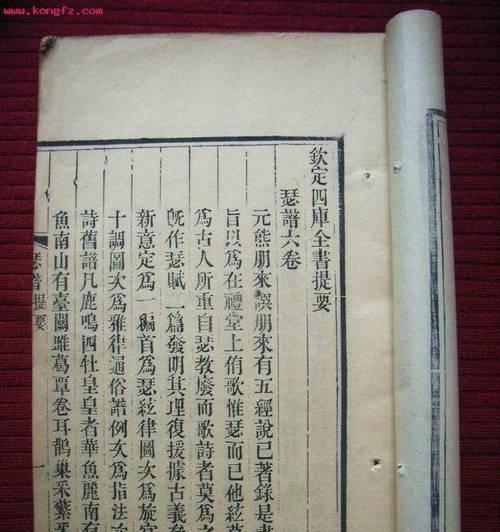 www.kongfz.com
欽定四庫全書提要
瑟譜六卷
元熊朋來譔朋來有五經說已著錄是書
旨以為在禮堂上侑歌惟瑟而已他絃
爲古人所重自瑟教廢而歌詩者莫爲之
旣作瑟賦二篇發明其理復援據古義
新意定爲一編首爲瑟絃律圖次爲旋宮
十調圖次爲雅律通俗譜例次爲指法次
詩舊譜凡鹿鳴四牡皇皇者華魚麗南有
魚南山有臺關雎葛覃卷耳鵲巢采蘩采
瑟譜提要
一